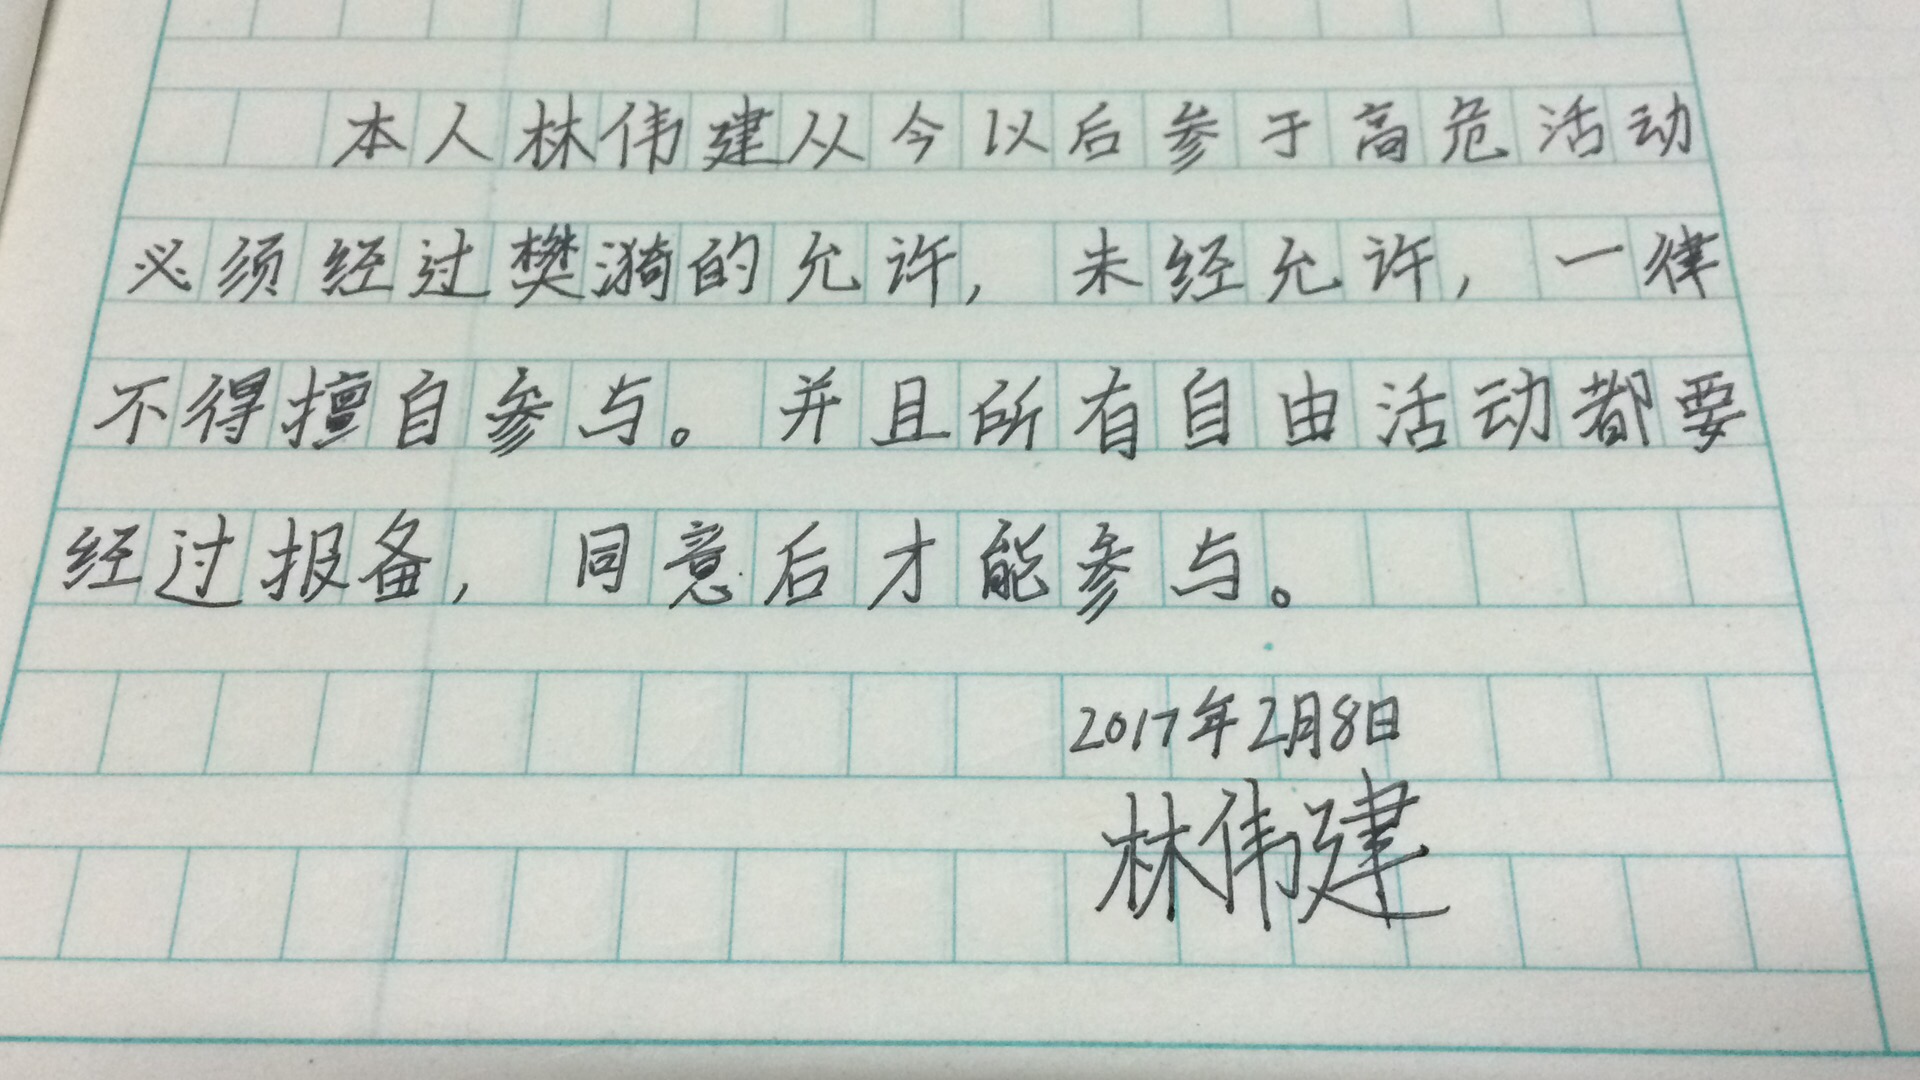 本人林伟建从今以后参于高危活动
必须经过樊漪的允许，未经允许，一律
不得擅自参与。并且所有自由活动都要
经过报备，同意后才能参与。
2017年2月8日
林伟建